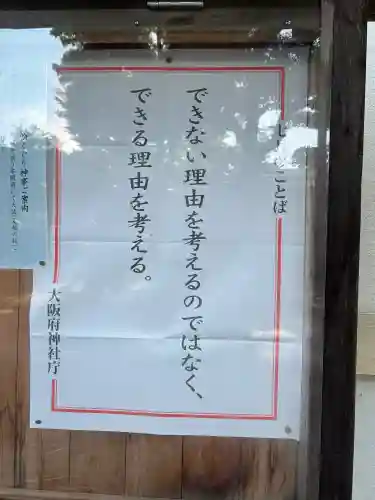 ことば
できない理由を考えるのではなく、
できる理由を考える。
大阪府神社庁
神事ご案内